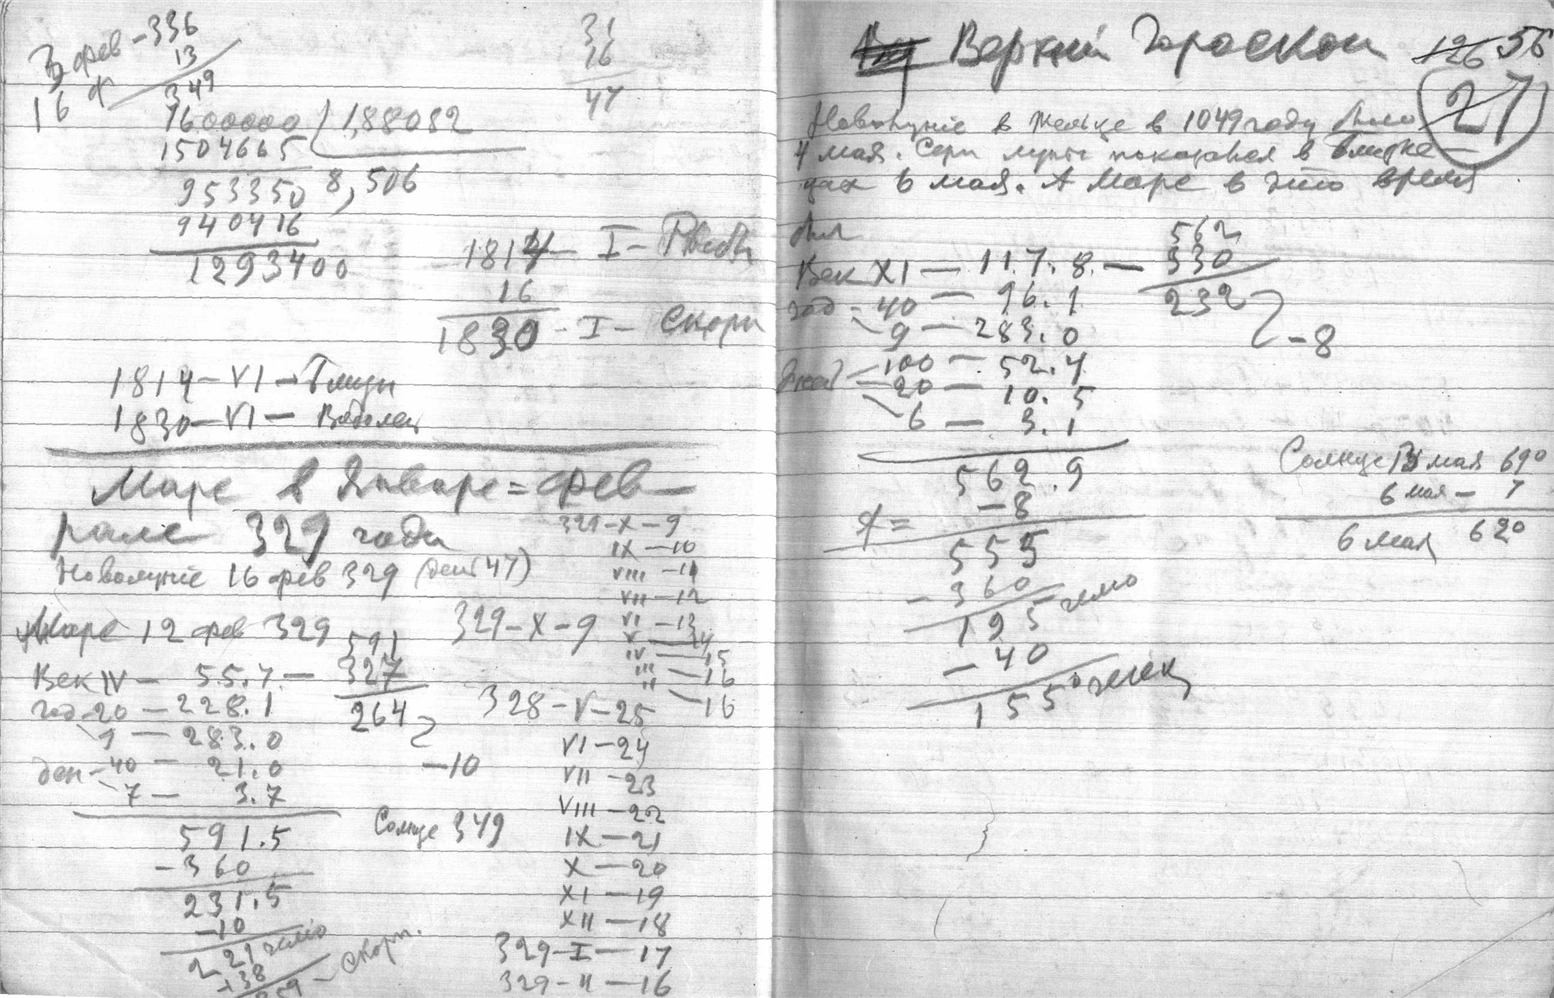 3 фев - 336
13
16 ф 349
31
16
47
1600000 | 1,88082
1504665
8,506
953350
940416
1293400
1814 - I -
16
1830 - I - Скорп
1814 - VI - Близн
1830 - VI - Водолец
Марс в Январе = фев
рале 329 года
Новолуние 16 фев 329 (день 47)
Марс 12 фев 329
591
Век IV - 55.7 - 327
год - 20 - 228.1
264
9 - 283.0
ден - 40 - 21.0
-10
7 - 3.7
591.5
Солнце 349
-360
231.5
-10
221 гелио
+38
259 - Скорп.
329-X-9
IX-10
VIII-11
VII-12
VI-13
V-14
IV-15
III-16
II-16
329-X-9
328-V-25
VI-24
VII-23
VIII-22
IX-21
X-20
XI-19
XII-18
329-I-17
329-II-16
Верхний Гороскоп 126 56
27
Новолуние в Тельце в 1049 году было
4 мая. Серп луны показался в Близне-
цах 6 мая. А Марс в это время
был
562
Век XI - 117.8 - 330
232
год - 40 - 96.1
9 - 283.0
-8
дней - 100 - 52.4
20 - 10.5
6 - 3.1
562.9
-8
♂ =
555
-360
195 гелио
-40
155°
Солнце 13 мая 69°
6 мая - 7
6 мая 62°